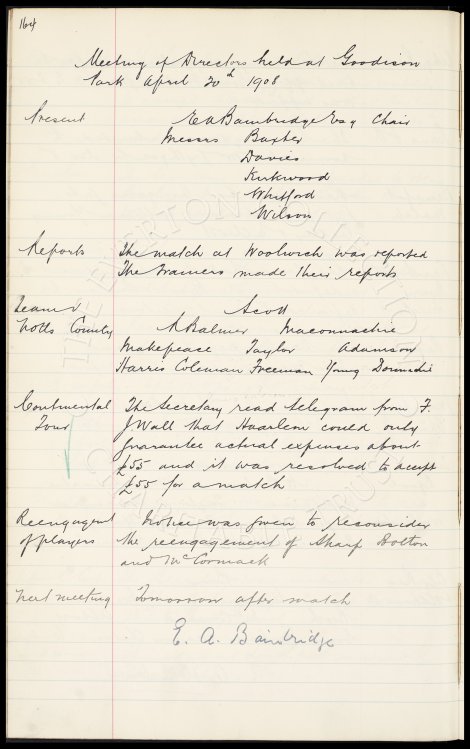 164
Meeting of Directors held at Goodison
Park April 20th 1908
Present E A Bainbridge Esq Chair
Messrs Baxter
Davies
Kirkwood
Whitford
Wilson
Reports The match at Woolwich was reported
The trainers made their reports
Team v Scott
Notts County R Balmer Maconnachie
Makepeace Taylor Adamson
Harris Coleman Freeman Young Donnachie
Continental The Secretary read telegram from F.
Tour J Wall that Haarlem could only
guarantee actual expenses about
£55 and it was resolved to accept
£55 for a match
Reengagent Notice was given to reconsider
of players the reengagement of Sharp Bolton
and McCormack
next meeting Tomorrow after match
E. A. Bainbridge
THE EVERTON COLLECTION
CHARITABLE TRUST